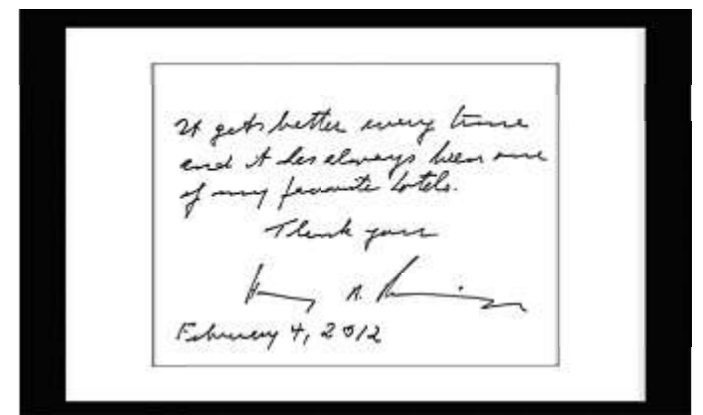 It gets better every time
and it has always been one
of my favorite hotels.
Thank you
Henry A. Kissinger
February 4, 2012